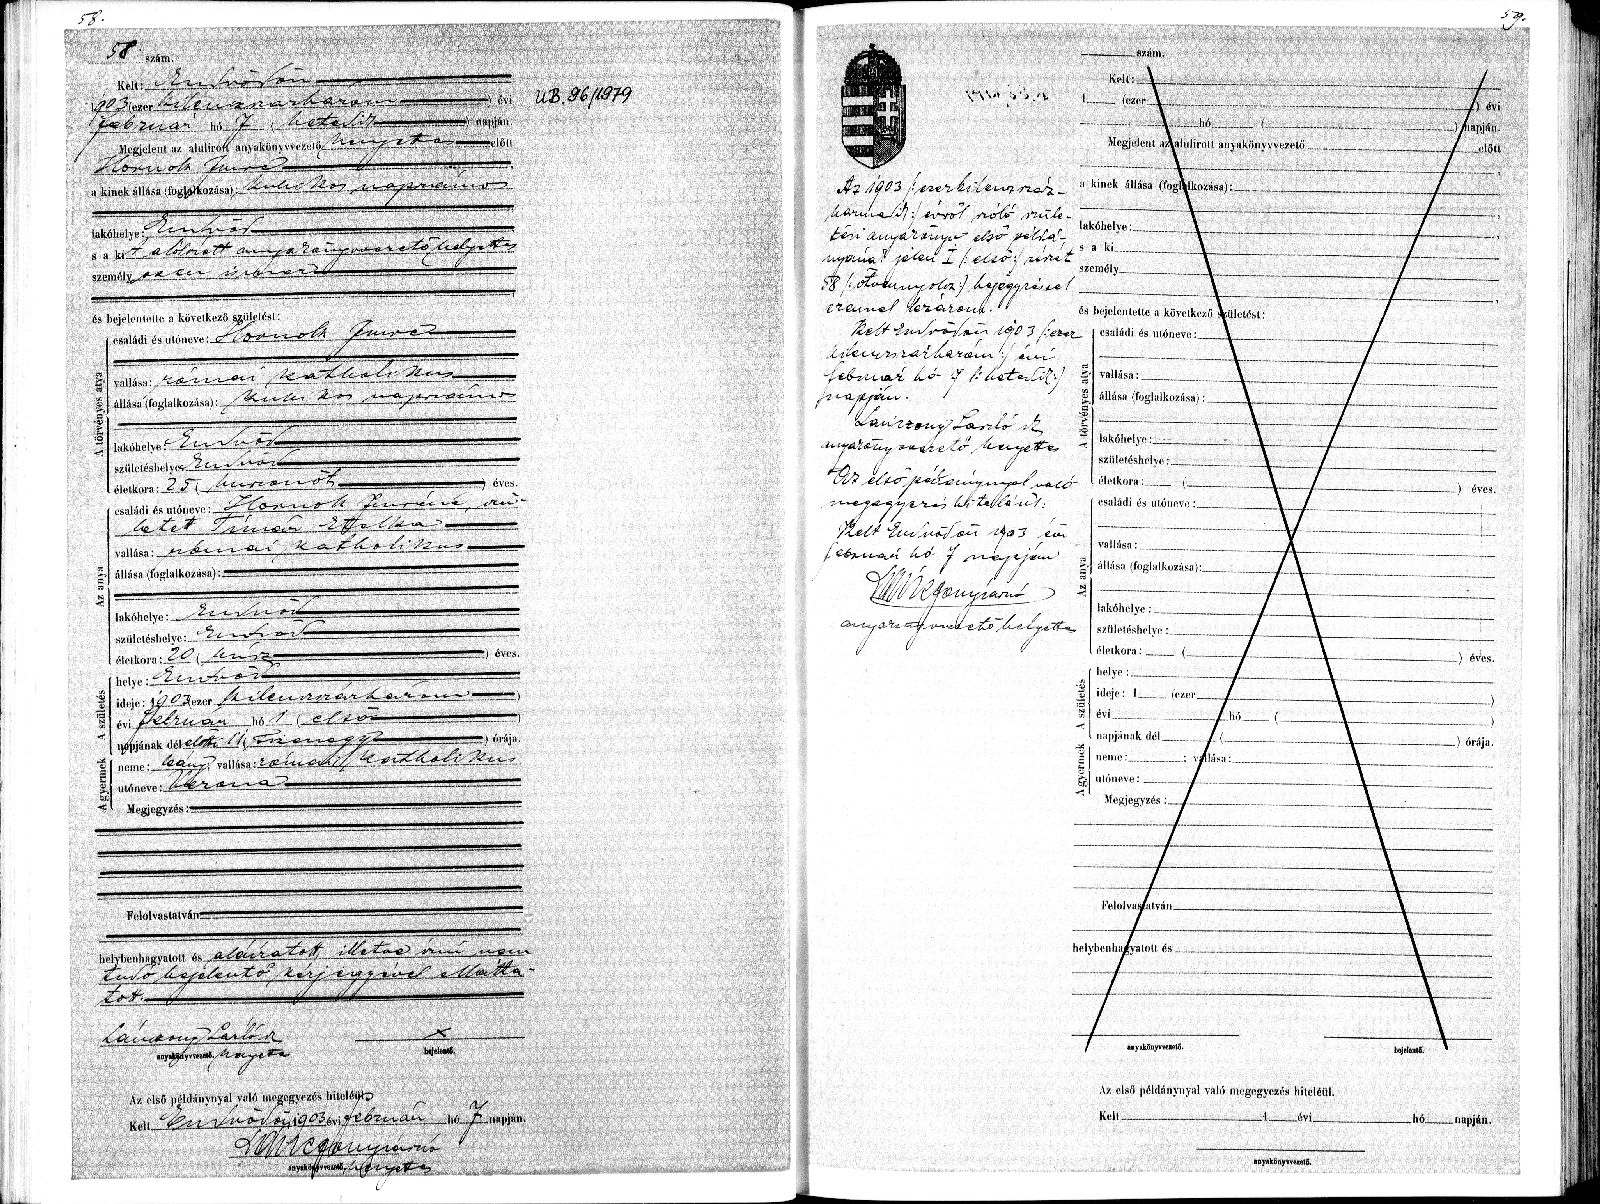 58.
58 szám.
Kelt: Endrődön
1903 (ezer kilenczszázhárom) évi
február hó 7 (hetedik) napján
Megjelent az alulirott anyakönyvvezető helyettes előtt
Hornok Imre
a kinek állása (foglalkozása): kubikos napszámos
lakóhelye: Endrőd
s a kit alólirott anyakönyvvezető helyettes
személyesen ismer
és bejelentette a következő születést:
A törvényes atya
családi és utóneve: Hornok Imre
vallása: római katholikus
állása (foglalkozása): kubikos napszámos
lakóhelye: Endrőd
születéshelye: Endrőd
életkora: 25 (huszonöt) éves.
Az anya
családi és utóneve: Hornok Imréné, szü-
letet Tímár Etelka
vallása: római katholikus
állása (foglalkozása):
lakóhelye: Endrőd
születéshelye: Endrőd
életkora: 20 (húsz) éves.
A születés
helye: Endrőd
ideje: 1903 (ezer kilenczszázhárom)
évi február hó 1 (első)
napjának délelőtti 11 (tizenegy) órája.
A gyermek
neme: leány; vallása: római katholikus
utóneve: Verona
Megjegyzés:
Felolvastatván
helybenhagyatott és aláíratott, illetve írni nem
tudó bejelentő kézjegyével elláttа-
tott.
Lánczony László x
anyakönyvvezető. helyettes bejelentő.
Az első példánynyal való megegyezés hiteléül.
Kelt Endrődön 1903 évi február hó 7 napján.
anyakönyvvezető. helyettes
UB. 96/1979
59.
Az 1903 /: ezerkilenczszáz-
harmadik :/ évről szóló szüle-
tési anyakönyv első példá-
nyának jelen I /: első :/ részét
58 /: Ötvennyolcz :/ bejegyzéssel
ezennel lezárom.
Kelt Endrődön 1903 /: ezer
kilenczszázhárom :/ évi
február hó 7 /: hetedik :/
napján.
Lánczony László
anyakönyvvezető helyettes
Az első példánynyal való
megegyezés hiteléül:
Kelt Endrődön 1903 évi
február hó 7 napján
anyakönyvvezető helyettes
szám.
Kelt:
1 (ezer ) évi
hó ( ) napján.
Megjelent az alulirott anyakönyvvezető előtt
a kinek állása (foglalkozása):
lakóhelye:
s a ki
személy
és bejelentette a következő születést:
A törvényes atya
családi és utóneve:
vallása:
állása (foglalkozása):
lakóhelye:
születéshelye:
életkora: ( ) éves.
Az anya
családi és utóneve:
vallása:
állása (foglalkozása):
lakóhelye:
születéshelye:
életkora: ( ) éves.
A születés
helye:
ideje: 1 (ezer )
évi hó ( )
napjának dél ( ) órája.
A gyermek
neme: ; vallása:
utóneve:
Megjegyzés:
Felolvastatván
helybenhagyatott és
anyakönyvvezető. bejelentő.
Az első példánynyal való megegyezés hiteléül.
Kelt 1 évi hó napján.
anyakönyvvezető.